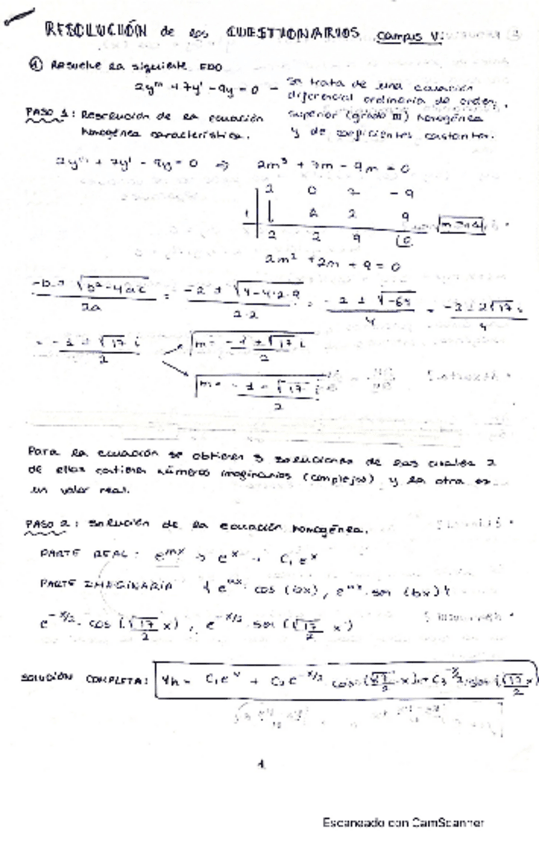 RESOLUCIÓN de los CUESTIONARIOS campus V.
① Resuelve la siguiente EDO
2y''' + 7y' - 9y = 0 - Se trata de una ecuación
diferencial ordinaria de orden
superior (grado m) homogénea
y de coeficientes constantes.
PASO 1: Resolución de la ecuación
homogénea característica.
2y''' + 7y' - 9y = 0 ⇒ 2m³ + 7m - 9m = 0
2 0 2 -9
1 2 2 9
2 2 9 0
2m² + 2m + 9 = 0
-b ± √b²-4ac / 2a = -2 ± √4-4·2·9 / 2·2 = -2 ± √-64 / 4 = -2 ± 2√17 i / 4
= -1 ± √17 i / 2
m = -1 + √17 i / 2
m = -1 - √17 i / 2
Para la ecuación se obtienen 3 soluciones de las cuales 2
de ellas contienen números imaginarios (complejos) y la otra es
un valor real.
PASO 2: Solución de la ecuación homogénea.
PARTE REAL: e^mx → e^x → C₁e^x
PARTE IMAGINARIA {e^ax · cos (bx), e^ax · sen (bx)}
e^-x/2 · cos (√17/2 x), e^-x/2 · sen (√17/2 x)
SOLUCIÓN COMPLETA: Yh = C₁e^x + C₂e^-x/2 cos (√17/2 x) + C₃^-x/2 · sen (√17/2 x)
1
Escaneado con CamScanner